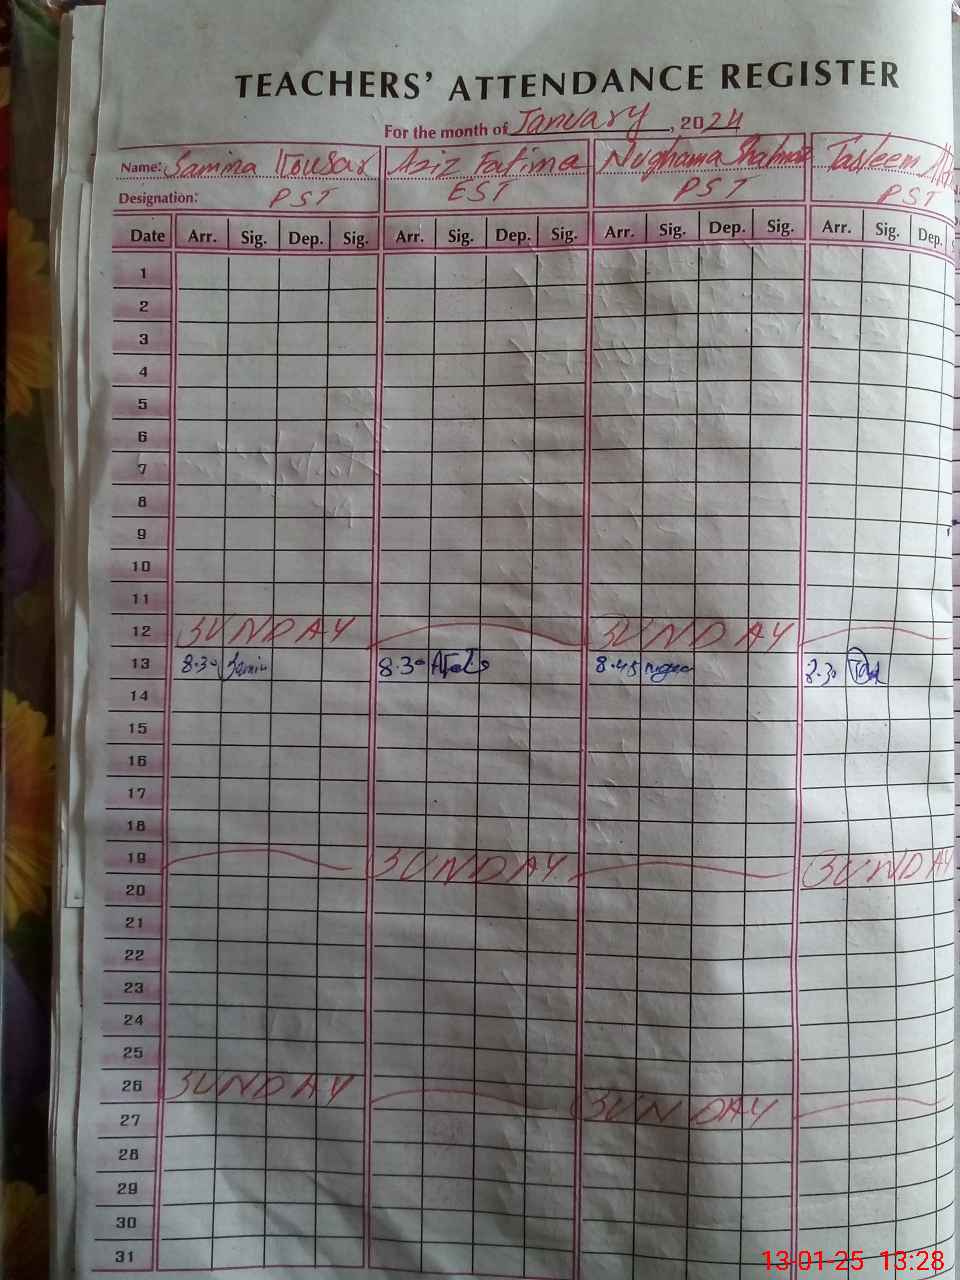 TEACHERS' ATTENDANCE REGISTER
For the month of January, 2024
Name: Samina Kousar Aziz Fatima Nughama Shaheen Tasleem
Designation: PST EST PST PST
Date Arr. Sig. Dep. Sig. Arr. Sig. Dep. Sig. Arr. Sig. Dep. Sig. Arr. Sig. Dep.
1
2
3
4
5
6
7
8
9
10
11
12 SUNDAY SUNDAY
13 8.30 Samin 8.30 8.45 8.30
14
15
16
17
18
19 SUNDAY SUNDAY
20
21
22
23
24
25
26 SUNDAY SUNDAY
27
28
29
30
31
13-01-25 13:28